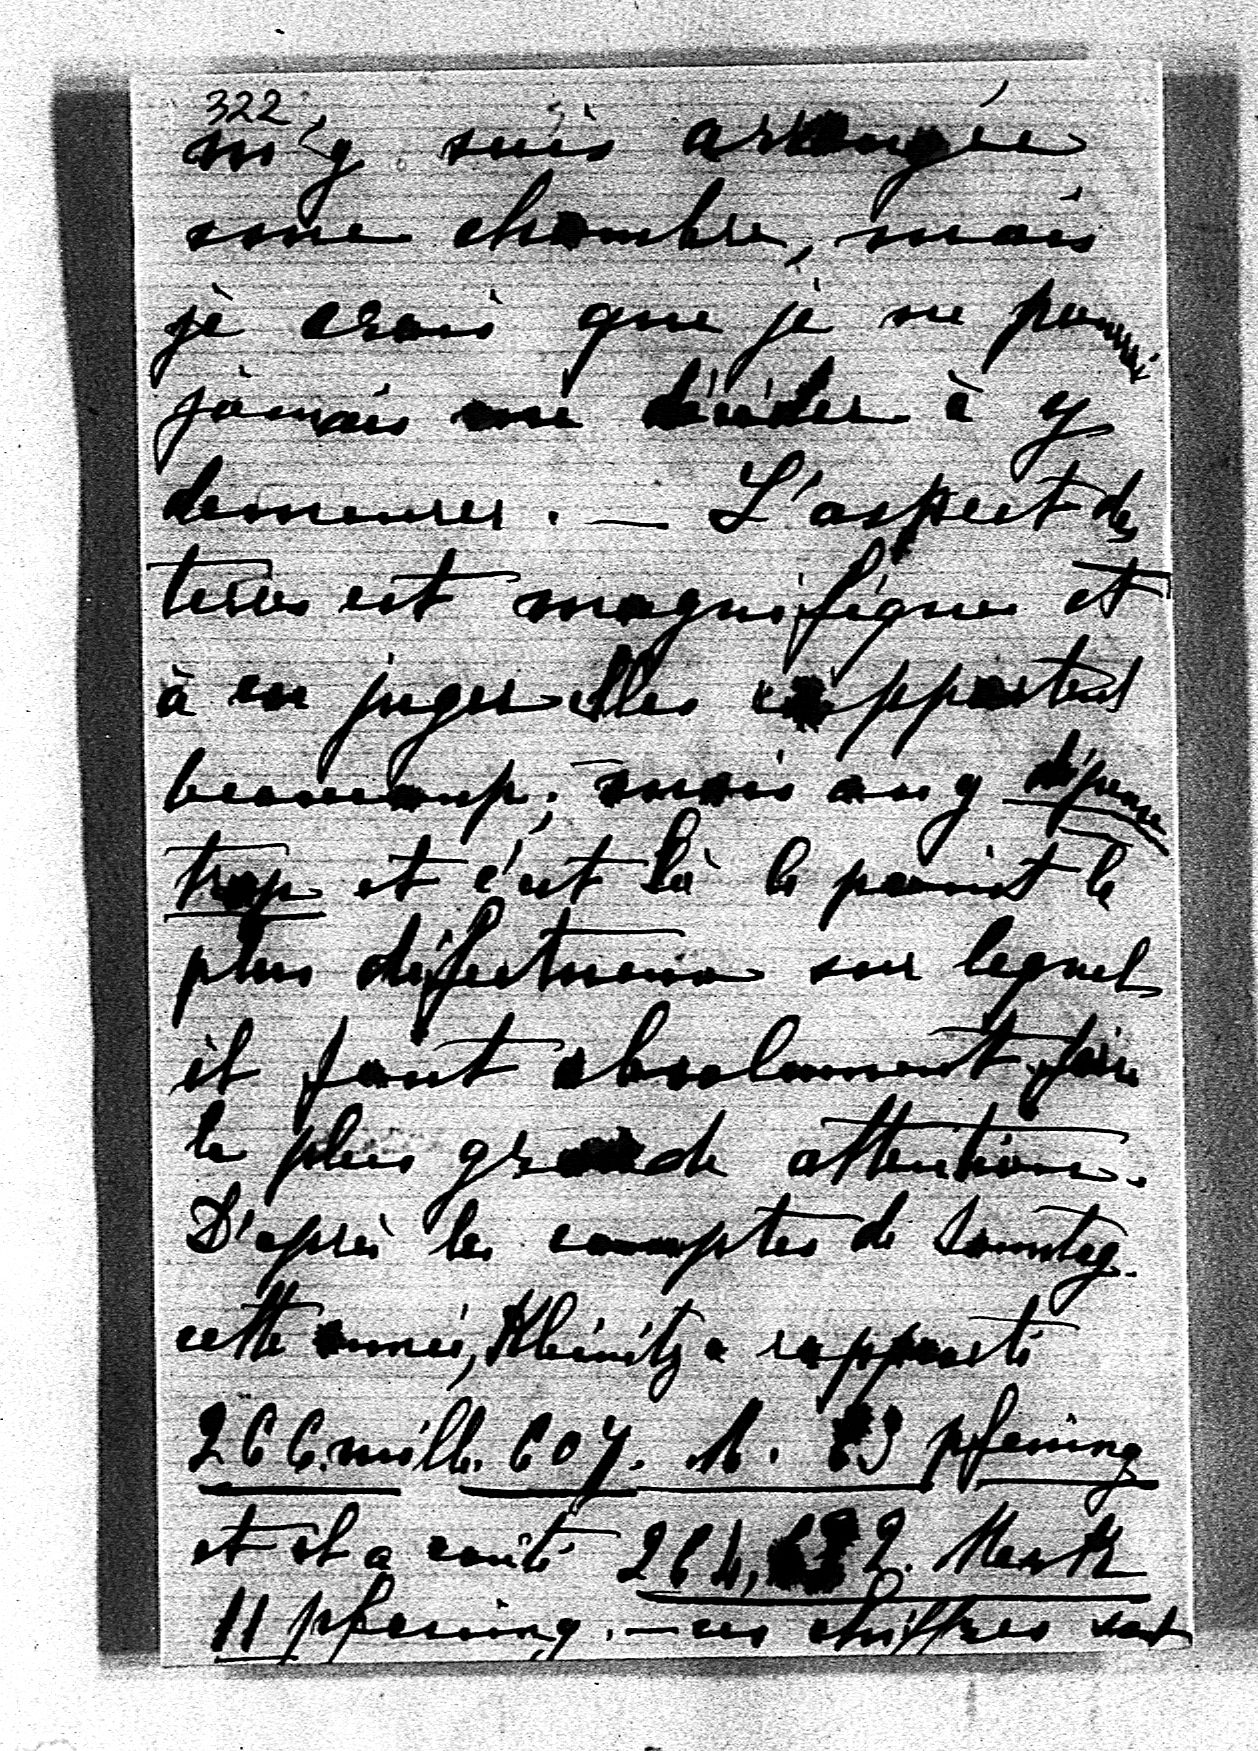 322
m'y suis arrangée
une chambre, mais
je crois que je ne pourrai
jamais me décider à y
demeurer. — L'aspect des
terres est magnifique et
à en juger elles rapportent
beaucoup; mais on y dépense
trop et c'est là le point le
plus défectueux sur lequel
il faut absolument faire
la plus grande attention.
D'après les comptes de Sonntag
cette année, Kleinitz a rapporté
266.mille.607. M. pfening
et il a couté Mark
11 pfening. — ces chiffres sont